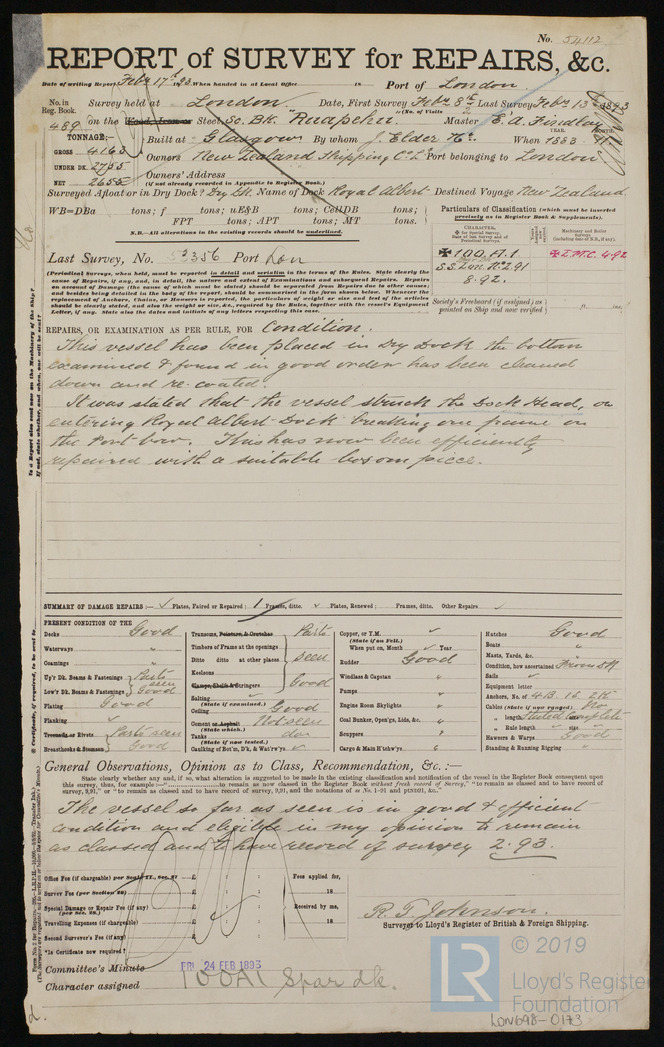 No. 54112
REPORT of SURVEY for REPAIRS, &c.
Date of writing Report Feby 17th 1893 When handed in at Local Office 18 Port of London
No. in Reg. Book. Survey held at London Date, First Survey Feby 8th Last Survey Feby 13th 1893
(No. of Visits 2)
489 on the Steel Sc. Bk. "Ruapehu" Master E. A. Findlay
TONNAGE:— Built at Glasgow By whom J. Elder & Co. When 1883
YEAR. MONTH.
GROSS 4163
Owners New Zealand Shipping Co. Ld. Port belonging to London
UNDER DK. 2755
NET 2655
Owners' Address
(if not already recorded in Appendix to Register Book.)
Surveyed Afloat or in Dry Dock? Dry Dk. Name of Dock Royal Albert Destined Voyage New Zealand
WB=DBa tons; f tons; uE&B tons; CellDB tons;
FPT tons; APT tons; MT tons.
N.B.—All alterations in the existing records should be underlined.
Particulars of Classification (which must be inserted precisely as in Register Book & Supplements).
CHARACTER.
Machinery and Boiler Surveys (including dates of N.B., if any).
✠ 100 A.1.
✠ L.M.C. 4.92
8.92.
Last Survey, No. 53356 Port Lon
(Periodical Surveys, when held, must be reported in detail and seriatim in the terms of the Rules. State clearly the
cause of Repairs, if any, and, in detail, the nature and extent of Examinations and subsequent Repairs. Repairs
on account of Damage (the cause of which must be stated) should be separated from Repairs due to other causes;
and besides being detailed in the body of the report, should be summarised in the form shown below. Whenever the
replacement of Anchors, Chains, or Hawsers is reported, the particulars of weight or size and test of the articles
should be clearly stated, and also the weight or size, &c., required by the Rules, together with the vessel's Equipment
Letter, if any. State also the dates and initials of any letters respecting this case.
Society's Freeboard (if assigned) as painted on Ship and now verified
REPAIRS, OR EXAMINATION AS PER RULE, FOR Condition.
This vessel has been placed in Dry Dock the bottom
examined & found in good order has been cleaned
down and re-coated.
It was stated that the vessel struck the Dock Head, on
entering Royal Albert Dock breaking one frame on
the Port bow. This has now been efficiently
repaired with a suitable bosom piece.
SUMMARY OF DAMAGE REPAIRS:— Plates, Faired or Repaired; 1 Frames, ditto. Plates, Renewed; Frames, ditto. Other Repairs
PRESENT CONDITION OF THE
Decks Good
Waterways "
Coamings
Up'r Dk. Beams & Fastenings Parts seen
Low'r Dk. Beams & Fastenings Good
Plating Good
Planking
Treenails or Rivets Parts seen
Breasthooks & Stemson Good
Transoms, Pointers, & Crutches Parts
Timbers of Frame at the openings
Ditto ditto at other places seen
Keelsons
Clamps, Shelfs & Stringers Good
Salting (State if examined.)
Ceiling Good
Cement or Asphalt (State which.) Not seen
Tanks (State if now tested.) do
Caulking of Bot'm, Dk, & Wat'rw'ys
Copper, or Y.M. (State if on Felt.)
When put on, Month Year
Rudder Good
Windlass & Capstan "
Pumps "
Engine Room Skylights "
Coal Bunker, Open'gs, Lids, &c. "
Scuppers "
Cargo & Main H'tchw'ys "
Hatches Good
Boats "
Masts, Yards, &c. "
Condition, how ascertained From Dk
Sails
Equipment letter
Anchors, No. of 4B. 1S. 2K.
Cables (State if now ranged) No
" length Stated Complete
" Rule length
Hawsers & Warps Good
Standing & Running Rigging "
General Observations, Opinion as to Class, Recommendation, &c.:—
State clearly whether any and, if so, what alteration is suggested to be made in the existing classification and notification of the vessel in the Register Book consequent upon
The vessel so far as seen is in good & efficient
condition and eligible in my opinion to remain
as classed and to have record of survey 2.93.
Office Fee (if chargeable) per Scale II., Sec. 27 £ : : Fees applied for,
Survey Fee (per Section 29) £ : : 18
Special Damage or Repair Fee (if any) (per Sec. 28.) £ : : Received by me,
Travelling Expenses (if chargeable) £ : : 18
Second Surveyor's Fee (if any) £ : :
*Is Certificate now required?
R. T. Johnson.
Surveyor to Lloyd's Register of British & Foreign Shipping.
Committee's Minute FRI 24 FEB 1893
Character assigned 100A1 Spar dk.
LR © 2019
Lloyd's Register
Foundation
LON698-0173